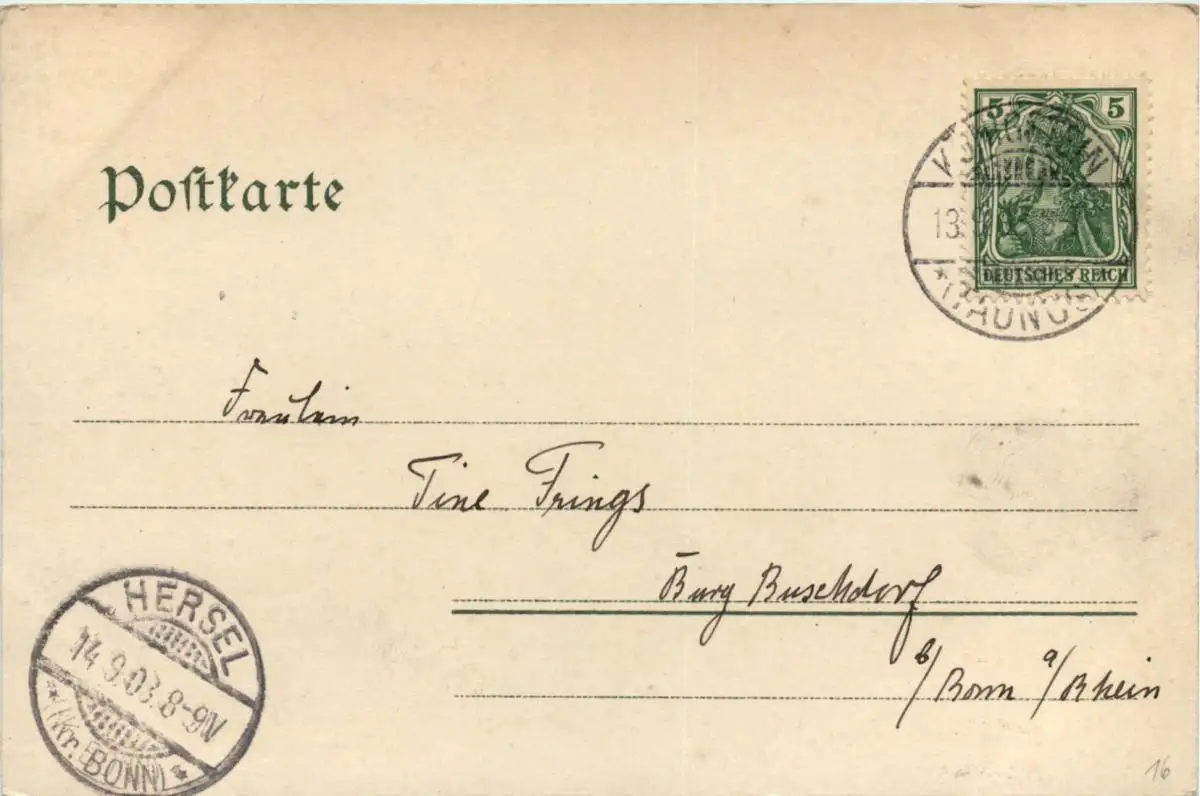 5 5
KÖNIGSTEIN
13.9.
DEUTSCHES REICH
* (TAUNUS)
Poſtkarte
Fräulein
Tine Frings
Burg Buschdorf
b/Bonn a/Rhein
HERSEL
14.9.03.8-9V
** (Kr. BONN) **
16